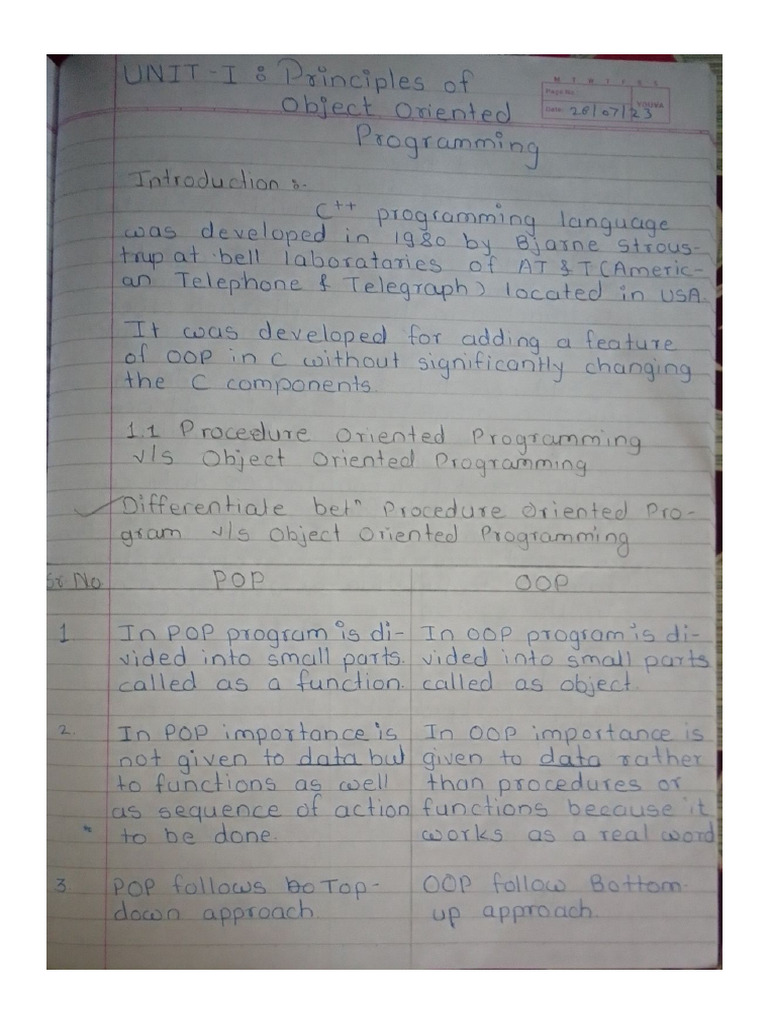 UNIT-I : Principles of
Object Oriented
Programming
M T W T F S S
Page No.:
Date: 28/07/23
YOUVA
Introduction :-
C++ programming language
was developed in 1980 by Bjarne strous-
trup at bell laborataries of AT & T (Americ-
an Telephone & Telegraph) located in USA.
It was developed for adding a feature
of OOP in C without significantly changing
the C components.
1.1 Procedure Oriented Programming
v/s Object Oriented Programming
Differentiate betn Procedure Oriented Pro-
gram v/s Object Oriented Programming
Sr No. POP OOP
1 In POP program is di- In OOP program is di-
vided into small parts. vided into small parts
called as a function. called as object.
2. In POP importance is In OOP importance is
not given to data but given to data rather
to functions as well than procedures or
as sequence of action functions because it
to be done. works as a real word
3. POP follows Top- OOP follow Bottom-
down approach. up approach.